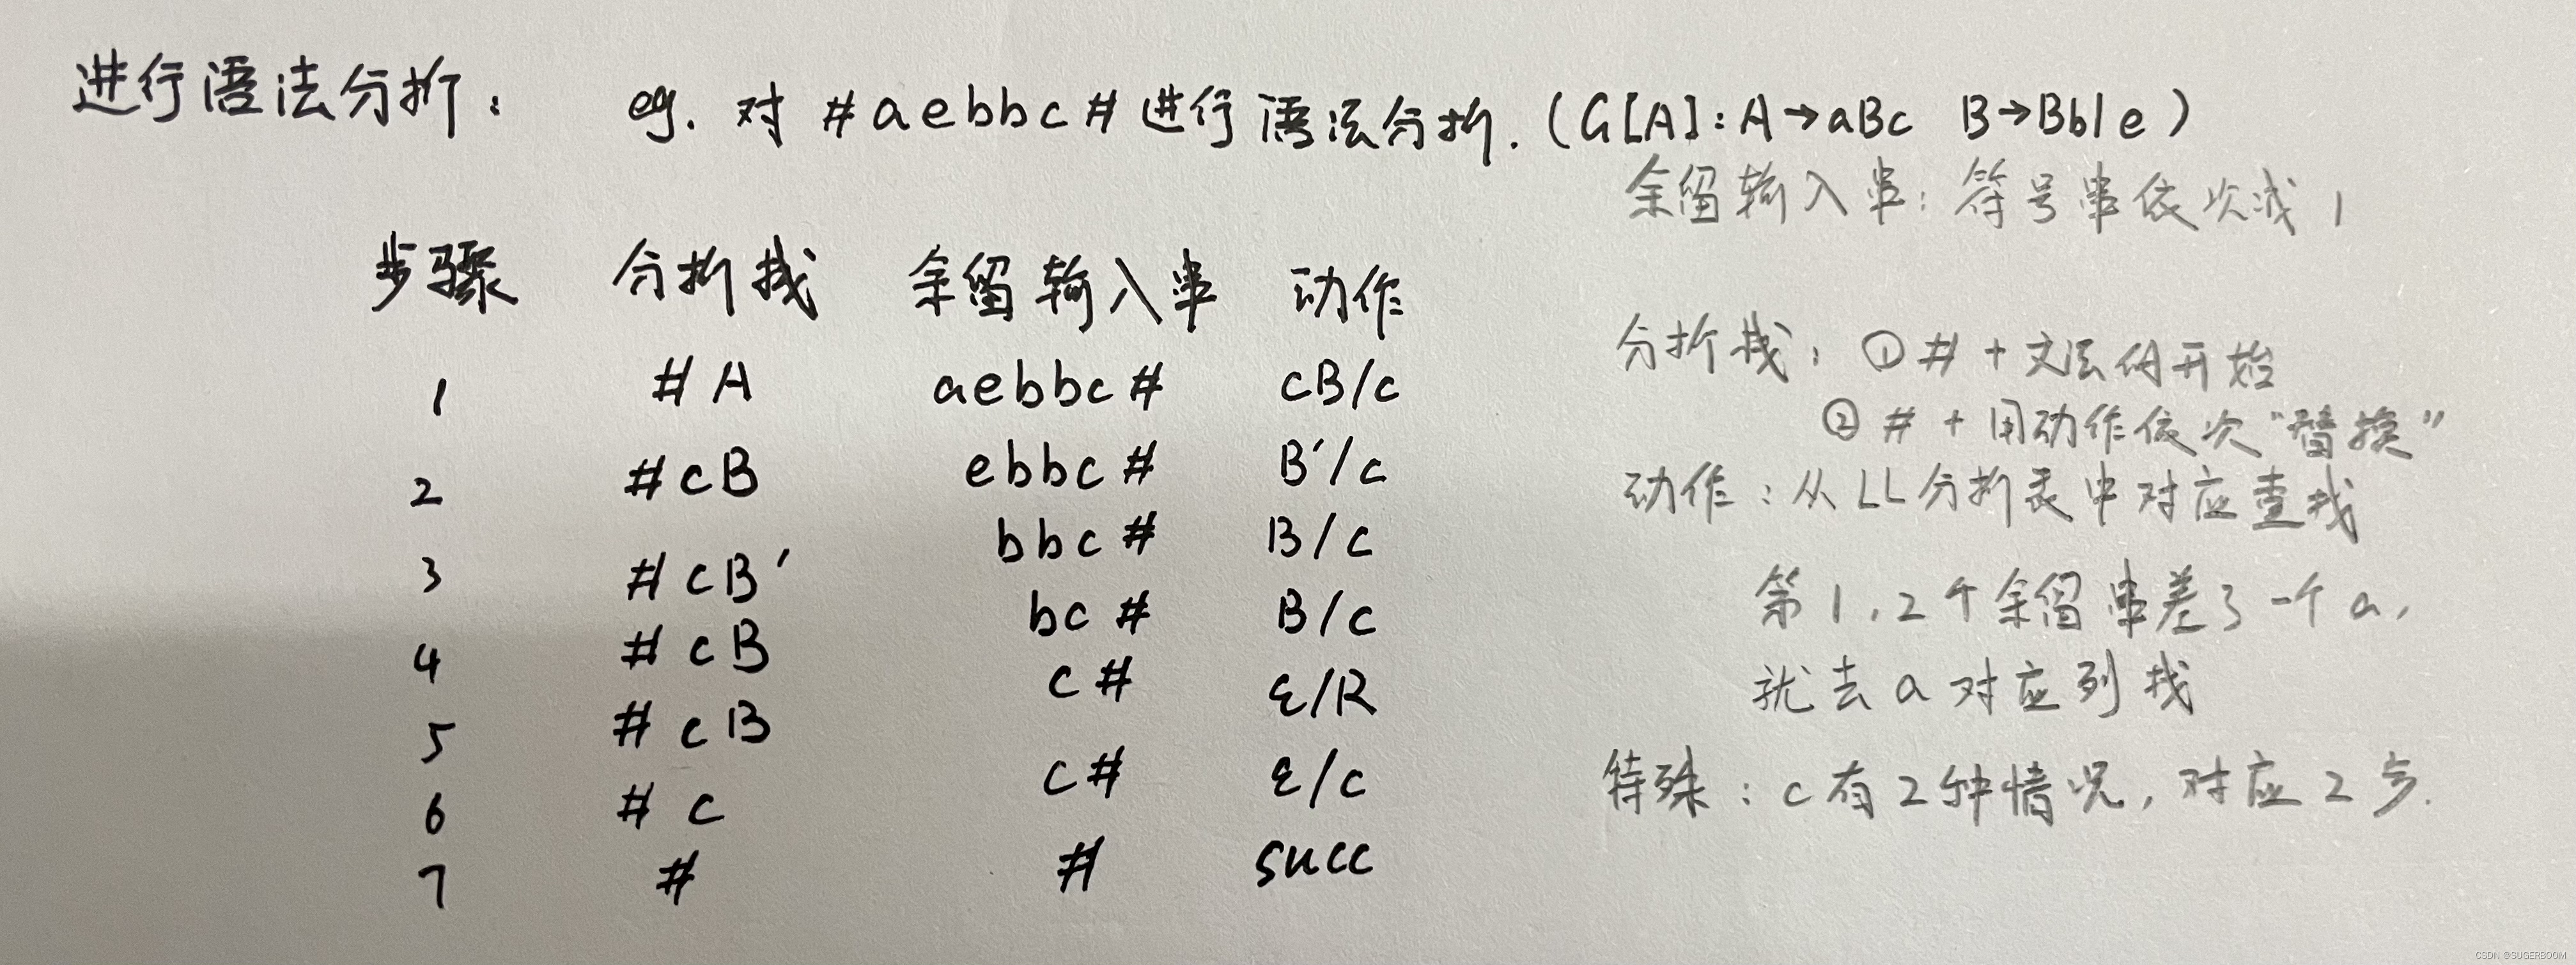 进行语法分析： eg. 对 #aebbc# 进行语法分析.（G[A]: A→aBc B→Bb|e）
余留输入串：符号串依次减1
步骤 分析栈 余留输入串 动作
1 #A aebbc# cB/c
2 #cB ebbc# B'/c
3 #cB' bbc# B/c
4 #cB bc# B/c
5 #cB c# ε/R
6 #c c# ε/c
7 # # succ
分析栈：①#+文法的开始
②#+用动作依次“替换”
动作：从LL分析表中对应查找
第1,2个余留串差了一个a,
就去a对应列找
特殊：c有2种情况，对应2步.
CSDN @SUGERBOOM